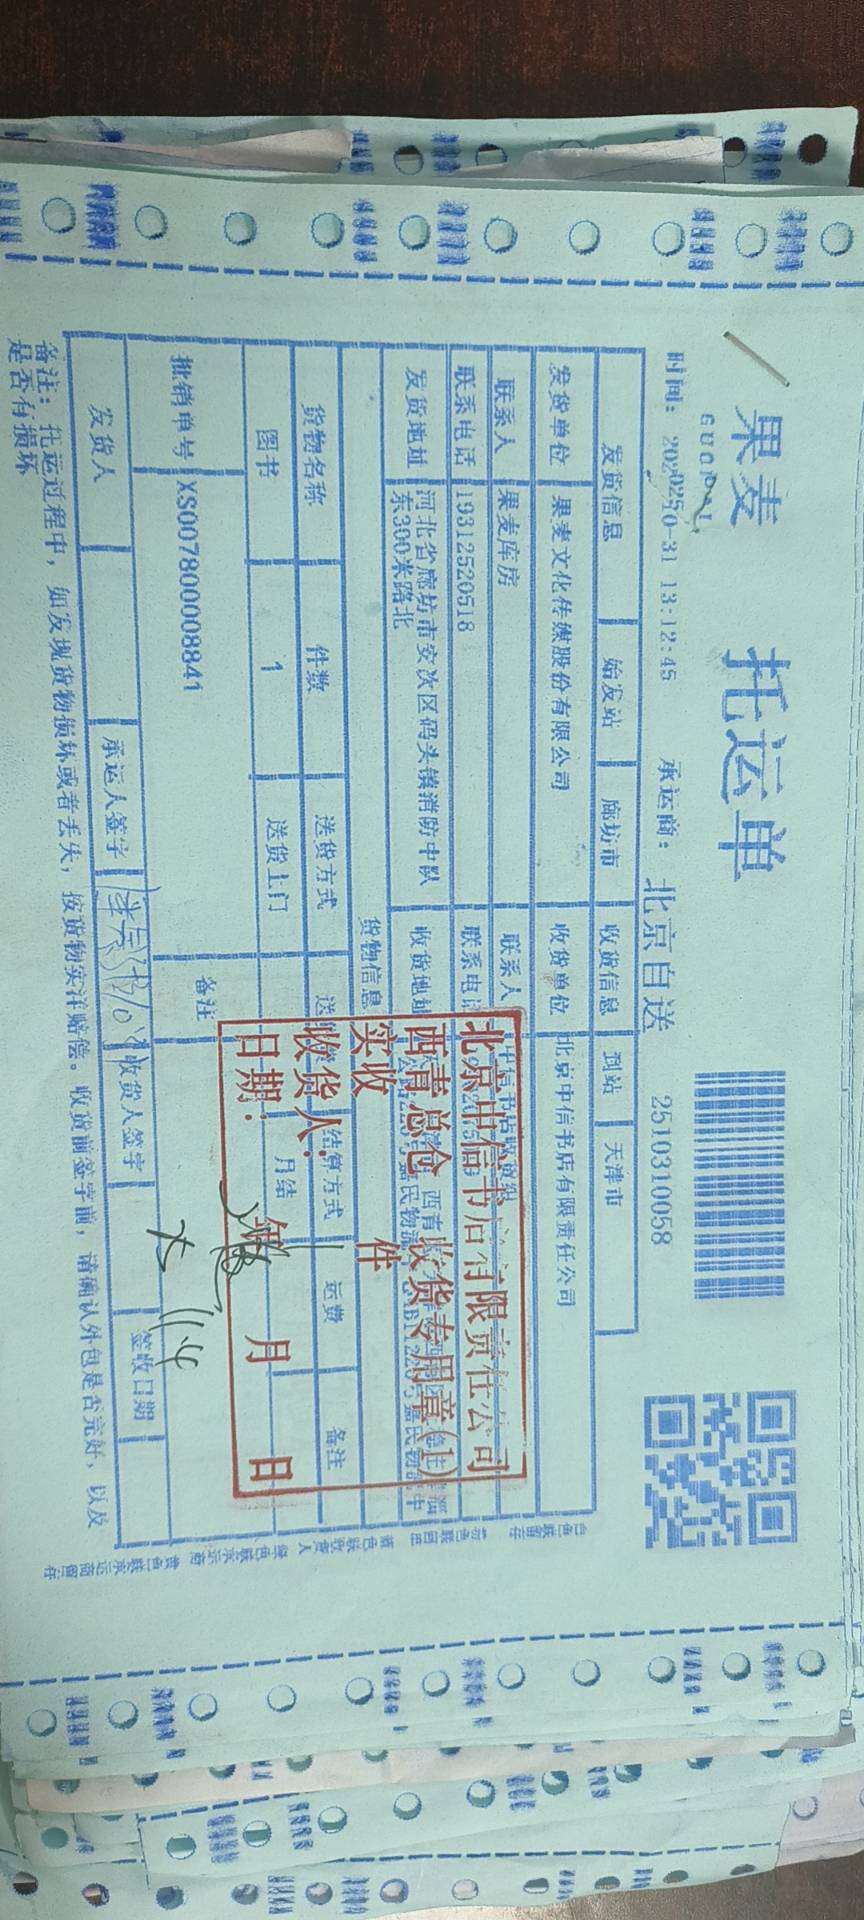 果麦
托运单
时间: 2025-10-31 13:12:45 承运商: 北京自送 2510310058
发货信息 始发站 廊坊市 收货信息 到站 天津市
发货单位 果麦文化传媒股份有限公司 收货单位 北京中信书店有限责任公司
联系人 果麦库房 联系人
联系电话 19312520518 联系电话
发货地址 河北省廊坊市安次区码头镇消防中队东300米路北 收货地址
货物信息
货物名称 件数 送货方式 结算方式 运费 备注
图书 1 送货上门 月结
批销单号 XS007800008841 备注
发货人 承运人签字 收货人签字 签收日期
11.4
备注: 托运过程中, 如发现货物损坏或者丢失, 按货物实洋赔偿。收货前签字前, 请确认外包是否完好, 以及
是否有损坏
北京中信书店有限责任公司
西青总仓 收货专用章(1)
实收 件
收货人:
日期: 年 月 日